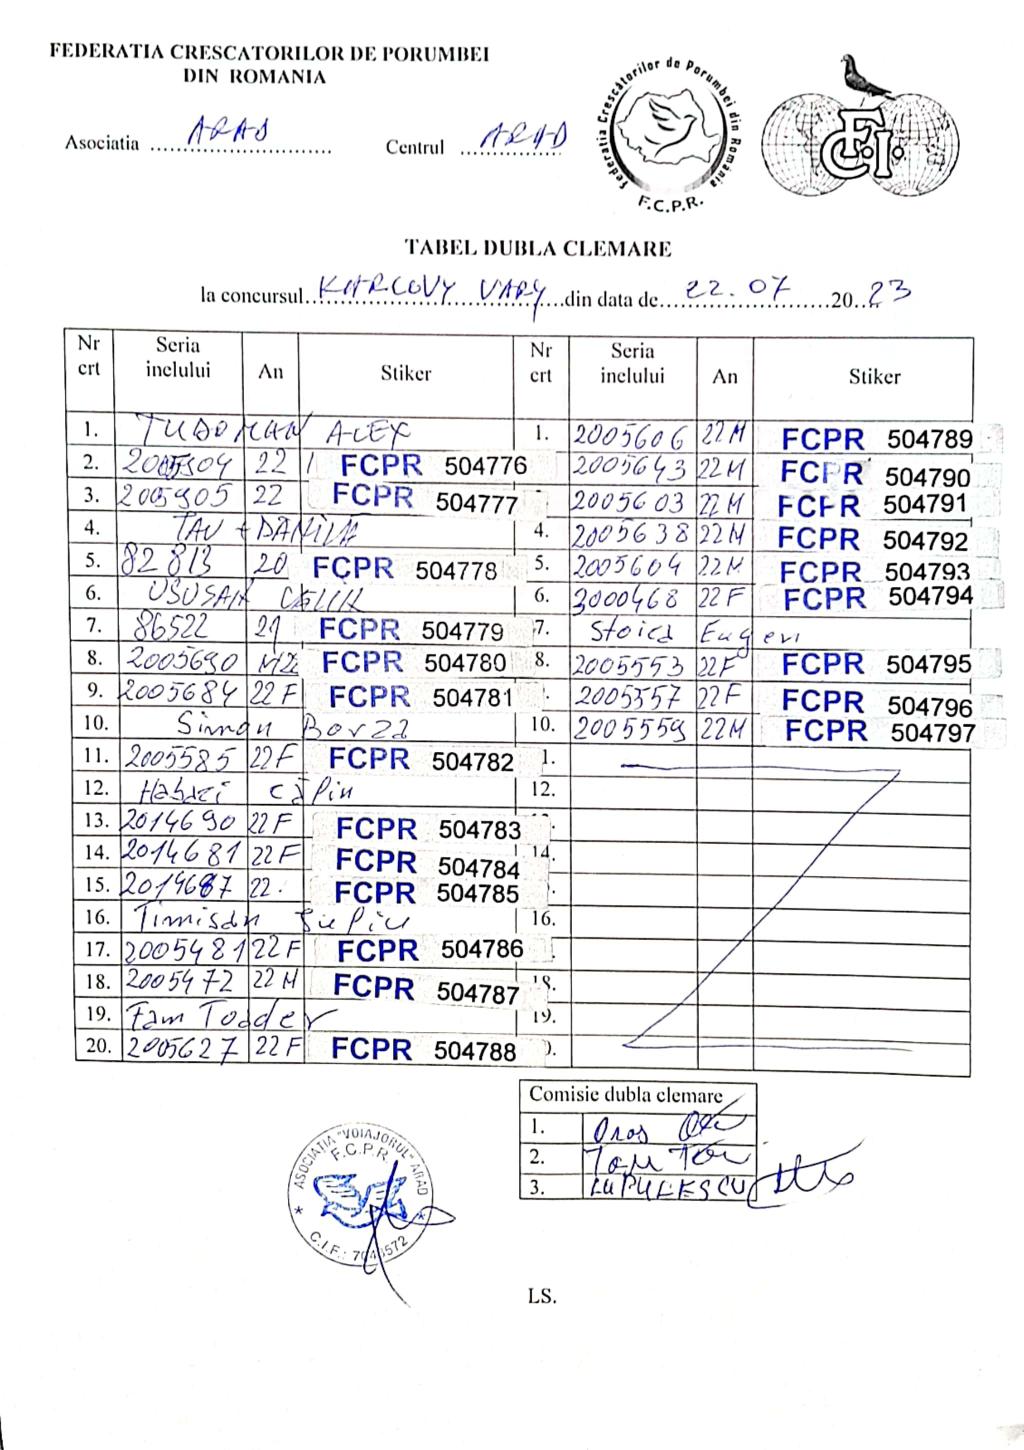 FEDERATIA CRESCATORILOR DE PORUMBEI
DIN ROMANIA
Federatia Crescătorilor de Porumbei din România
F.C.P.R.
FCI
Asociatia ARAD
Centrul ARAD
TABEL DUBLA CLEMARE
la concursul KARLOVY VARY din data de 22.07 2023
Nr crt Seria inelului An Stiker Nr crt Seria inelului An Stiker
1. TUDORAN ALEX 1. 2005606 22 M FCPR 504789
2. 2005904 22 FCPR 504776 2005643 22 M FCPR 504790
3. 2005905 22 FCPR 504777 2005603 22 M FCPR 504791
4. TAU + DANILA 4. 2005638 22 M FCPR 504792
5. 82813 20 FCPR 504778 5. 2005604 22 M FCPR 504793
6. USUSAN 6. 3000468 22 F FCPR 504794
7. 86522 21 FCPR 504779 7. Stoica Eugen
8. 2005690 FCPR 504780 8. 2005553 22 F FCPR 504795
9. 2005684 22 F FCPR 504781 2005557 22 F FCPR 504796
10. Simon Borza 10. 2005559 22 M FCPR 504797
11. 2005585 22 F FCPR 504782 1.
12. Călin 12.
13. 2014690 22 F FCPR 504783
14. 2014681 22 F FCPR 504784 14.
15. 2014687 22. FCPR 504785
16. Timisan 16.
17. 2005481 22 F FCPR 504786
18. 2005472 22 M FCPR 504787 18.
19. Fam Toader 19.
20. 2005627 22 F FCPR 504788
Comisie dubla clemare
1. Oros
2.
3. LUPULESCU
ASOCIATIA "VOIAJORUL" ARAD
F.C.P.R.
C.I.F.:
LS.